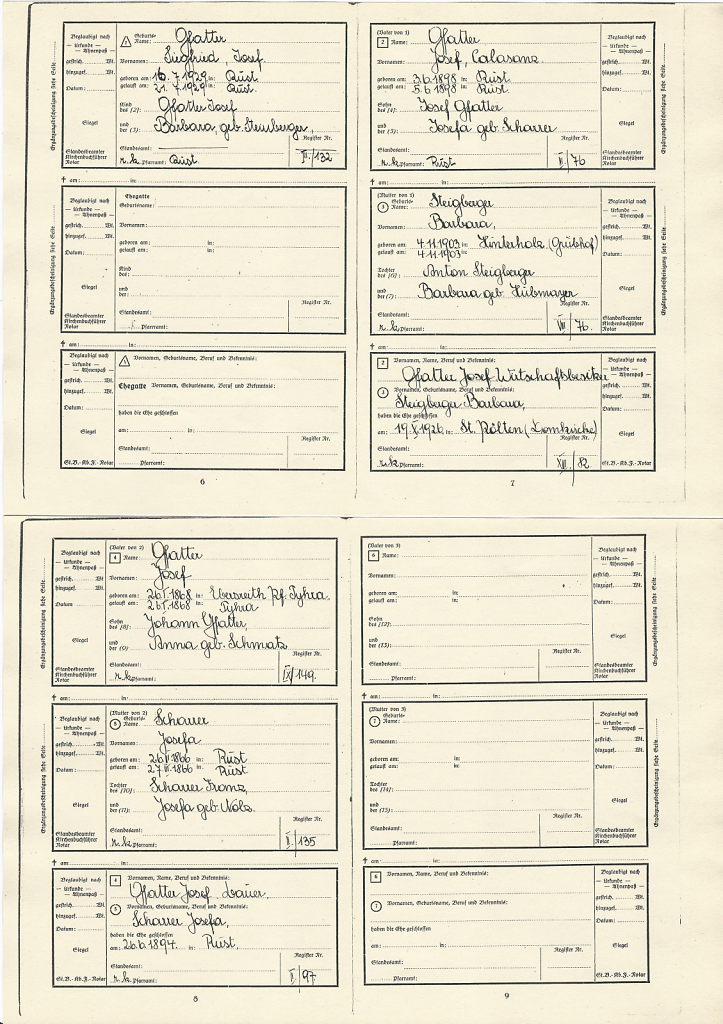 Ergänzungsbescheinigung siehe Seite
Beglaubigt nach
— Urkunde —
— Ahnenpaß —
gestrich. Wt.
hinzugef. Wt.
Datum:
Siegel
Standesbeamter
Kirchenbuchführer
Notar
1 Geburts-
Name: Gfatter
Vornamen: Siegfried, Josef
geboren am: 16.7.1929 in: Rust
getauft am: 21.7.1929 in: Rust
Kind
des (2): Gfatter Josef
und
der (3): Barbara, geb. Steinberger,
Register Nr.
Standesamt:
r.k. Pfarramt: Rust. /132
(Vater von 1)
2 Name: Gfatter
Vornamen: Josef, Calasanz
geboren am: 3.6.1898 in: Rust
getauft am: 5.6.1898 in: Rust.
Sohn
des (4): Josef Gfatter
und
der (5): Josefa geb. Scharrer
Register Nr.
Standesamt:
r.k. Pfarramt: Rust /76
Beglaubigt nach
— Urkunde —
— Ahnenpaß —
gestrich. Wt.
hinzugef. Wt.
Datum:
Siegel
Standesbeamter
Kirchenbuchführer
Notar
Ergänzungsbescheinigung siehe Seite
† am: in:
† am: in:
Beglaubigt nach
— Urkunde —
— Ahnenpaß —
gestrich. Wt.
hinzugef. Wt.
Datum:
Siegel
Standesbeamter
Kirchenbuchführer
Notar
Ehegatte
Geburtsname:
Vornamen:
geboren am: in:
getauft am: in:
Kind
des:
und
der:
Register Nr.
Standesamt:
Pfarramt:
(Mutter von 1)
3 Geburts-
Name: Steigberger
Barbara,
geboren am: 4.11.1903 in: Hinterholz (Grubhof)
getauft am: 4.11.1903 in:
Tochter
des (6): Anton Steigberger
und
der (7): Barbara geb. Hubmayer
Register Nr.
Standesamt:
r.k. Pfarramt: VIII/76.
Beglaubigt nach
— Urkunde —
— Ahnenpaß —
gestrich. Wt.
hinzugef. Wt.
Datum:
Siegel
Standesbeamter
Kirchenbuchführer
Notar
† am: in:
† am: in:
Beglaubigt nach
— Urkunde —
— Ahnenpaß —
gestrich. Wt.
hinzugef. Wt.
Datum:
Siegel
St.B.-Kb.F.-Notar
1 Vornamen, Geburtsname, Beruf und Bekenntnis:
Ehegatte Vornamen, Geburtsname, Beruf und Bekenntnis:
haben die Ehe geschlossen
am: in:
Register Nr.
Standesamt:
Pfarramt:
2 Vornamen, Name, Beruf und Bekenntnis:
Gfatter Josef Wirtschaftsbesitzer
3 Vornamen, Geburtsname, Beruf und Bekenntnis:
Steigberger Barbara,
haben die Ehe geschlossen
am: 19. 1926 in: St. Pölten (Domkirche)
Register Nr.
Standesamt:
r.k. Pfarramt: XIII/82
Beglaubigt nach
— Urkunde —
— Ahnenpaß —
gestrich. Wt.
hinzugef. Wt.
Datum:
Siegel
St.B.-Kb.F.-Notar
6
7
Ergänzungsbescheinigung siehe Seite
Beglaubigt nach
— Urkunde —
— Ahnenpaß —
gestrich. Wt.
hinzugef. Wt.
Datum:
Siegel
Standesbeamter
Kirchenbuchführer
Notar
(Vater von 2)
4 Name: Gfatter
Vornamen: Josef
geboren am: 26.1.1868 in: Ebersreith Pf. Pyhra.
getauft am: 26.1.1868 in: Pyhra
Sohn
des (8): Johann Gfatter,
und
der (9): Anna geb. Schmatz
Register Nr.
Standesamt:
r.k. Pfarramt: IX/149.
(Vater von 3)
6 Name:
Vornamen:
geboren am: in:
getauft am: in:
Sohn
des (12):
und
der (13):
Register Nr.
Standesamt:
Pfarramt:
Beglaubigt nach
— Urkunde —
— Ahnenpaß —
gestrich. Wt.
hinzugef. Wt.
Datum:
Siegel
Standesbeamter
Kirchenbuchführer
Notar
Ergänzungsbescheinigung siehe Seite
† am: in:
† am: in:
Beglaubigt nach
— Urkunde —
— Ahnenpaß —
gestrich. Wt.
hinzugef. Wt.
Datum:
Siegel
Standesbeamter
Kirchenbuchführer
Notar
(Mutter von 2)
5 Geburts-
Name: Scharrer
Vornamen: Josefa
geboren am: 26. 1866 in: Rust
getauft am: 27. 1866 in: Rust
Tochter
des (10): Scharrer Franz,
und
der (11): Josefa geb. Nolz.
Register Nr.
Standesamt:
r.k. Pfarramt: /135
(Mutter von 3)
7 Geburts-
Name:
Vornamen:
geboren am: in:
getauft am: in:
Tochter
des (14):
und
der (15):
Register Nr.
Standesamt:
Pfarramt:
Beglaubigt nach
— Urkunde —
— Ahnenpaß —
gestrich. Wt.
hinzugef. Wt.
Datum:
Siegel
Standesbeamter
Kirchenbuchführer
Notar
† am: in:
† am: in:
Beglaubigt nach
— Urkunde —
— Ahnenpaß —
gestrich. Wt.
hinzugef. Wt.
Datum:
Siegel
St.B.-Kb.F.-Notar
4 Vornamen, Name, Beruf und Bekenntnis:
Gfatter Josef, Bauer,
5 Vornamen, Geburtsname, Beruf und Bekenntnis:
Scharrer Josefa,
haben die Ehe geschlossen
am: 26.6.1894. in: Rust,
Register Nr.
Standesamt:
r.k. Pfarramt: /97
6 Vornamen, Name, Beruf und Bekenntnis:
7 Vornamen, Geburtsname, Beruf und Bekenntnis:
haben die Ehe geschlossen
am: in:
Register Nr.
Standesamt:
Pfarramt:
Beglaubigt nach
— Urkunde —
— Ahnenpaß —
gestrich. Wt.
hinzugef. Wt.
Datum:
Siegel
St.B.-Kb.F.-Notar
8
9